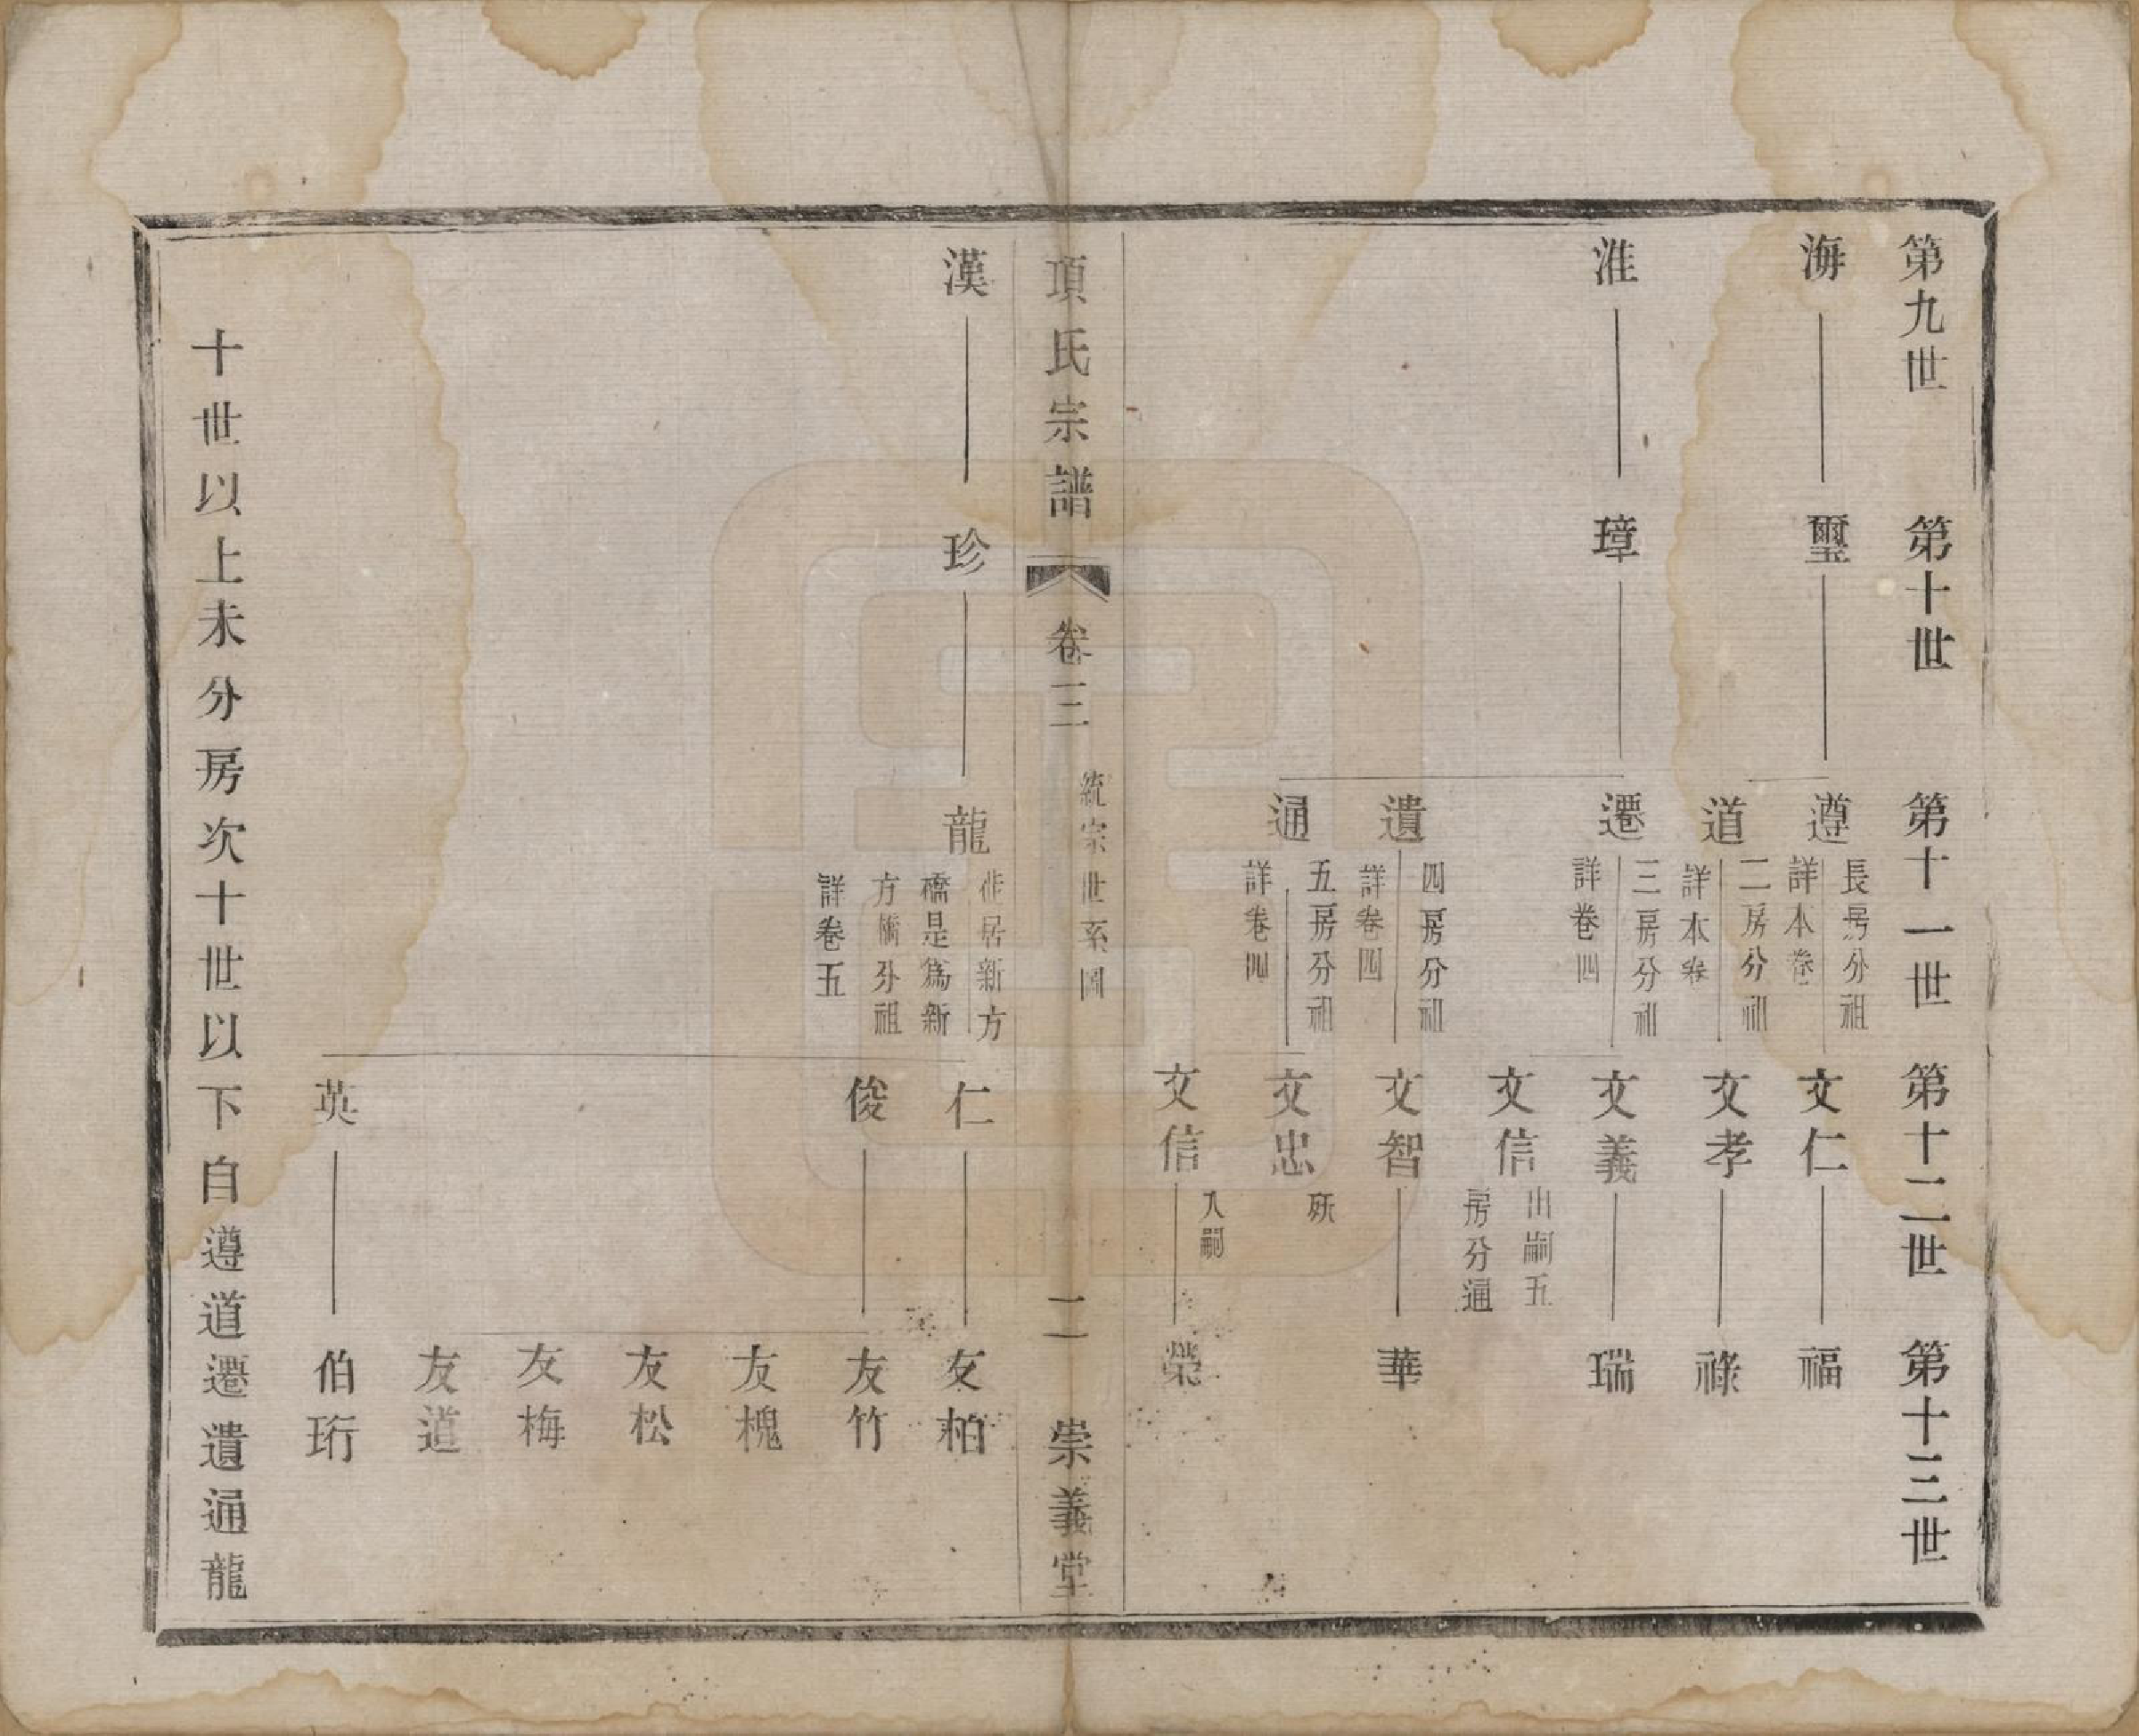 第九世
第十世
第十一世
第十二世
第十三世
海
璽
遵
長房分祖
詳本卷
文仁
福
道
二房分祖
詳本卷
文孝
祿
淮
璋
遷
三房分祖
詳卷四
文義
瑞
文信
出嗣五
房分通
遺
四房分祖
詳卷四
文智
華
通
五房分祖
詳卷四
文忠
殀
文信
入嗣
榮
項氏宗譜
卷三
統宗世系圖
二
崇義堂
漢
珍
龍
徙居新方
橋是爲新
方橋分祖
詳卷五
仁
友柏
俊
友竹
友槐
友松
友梅
友道
英
伯珩
十世以上未分房次十世以下自遵道遷遺通龍